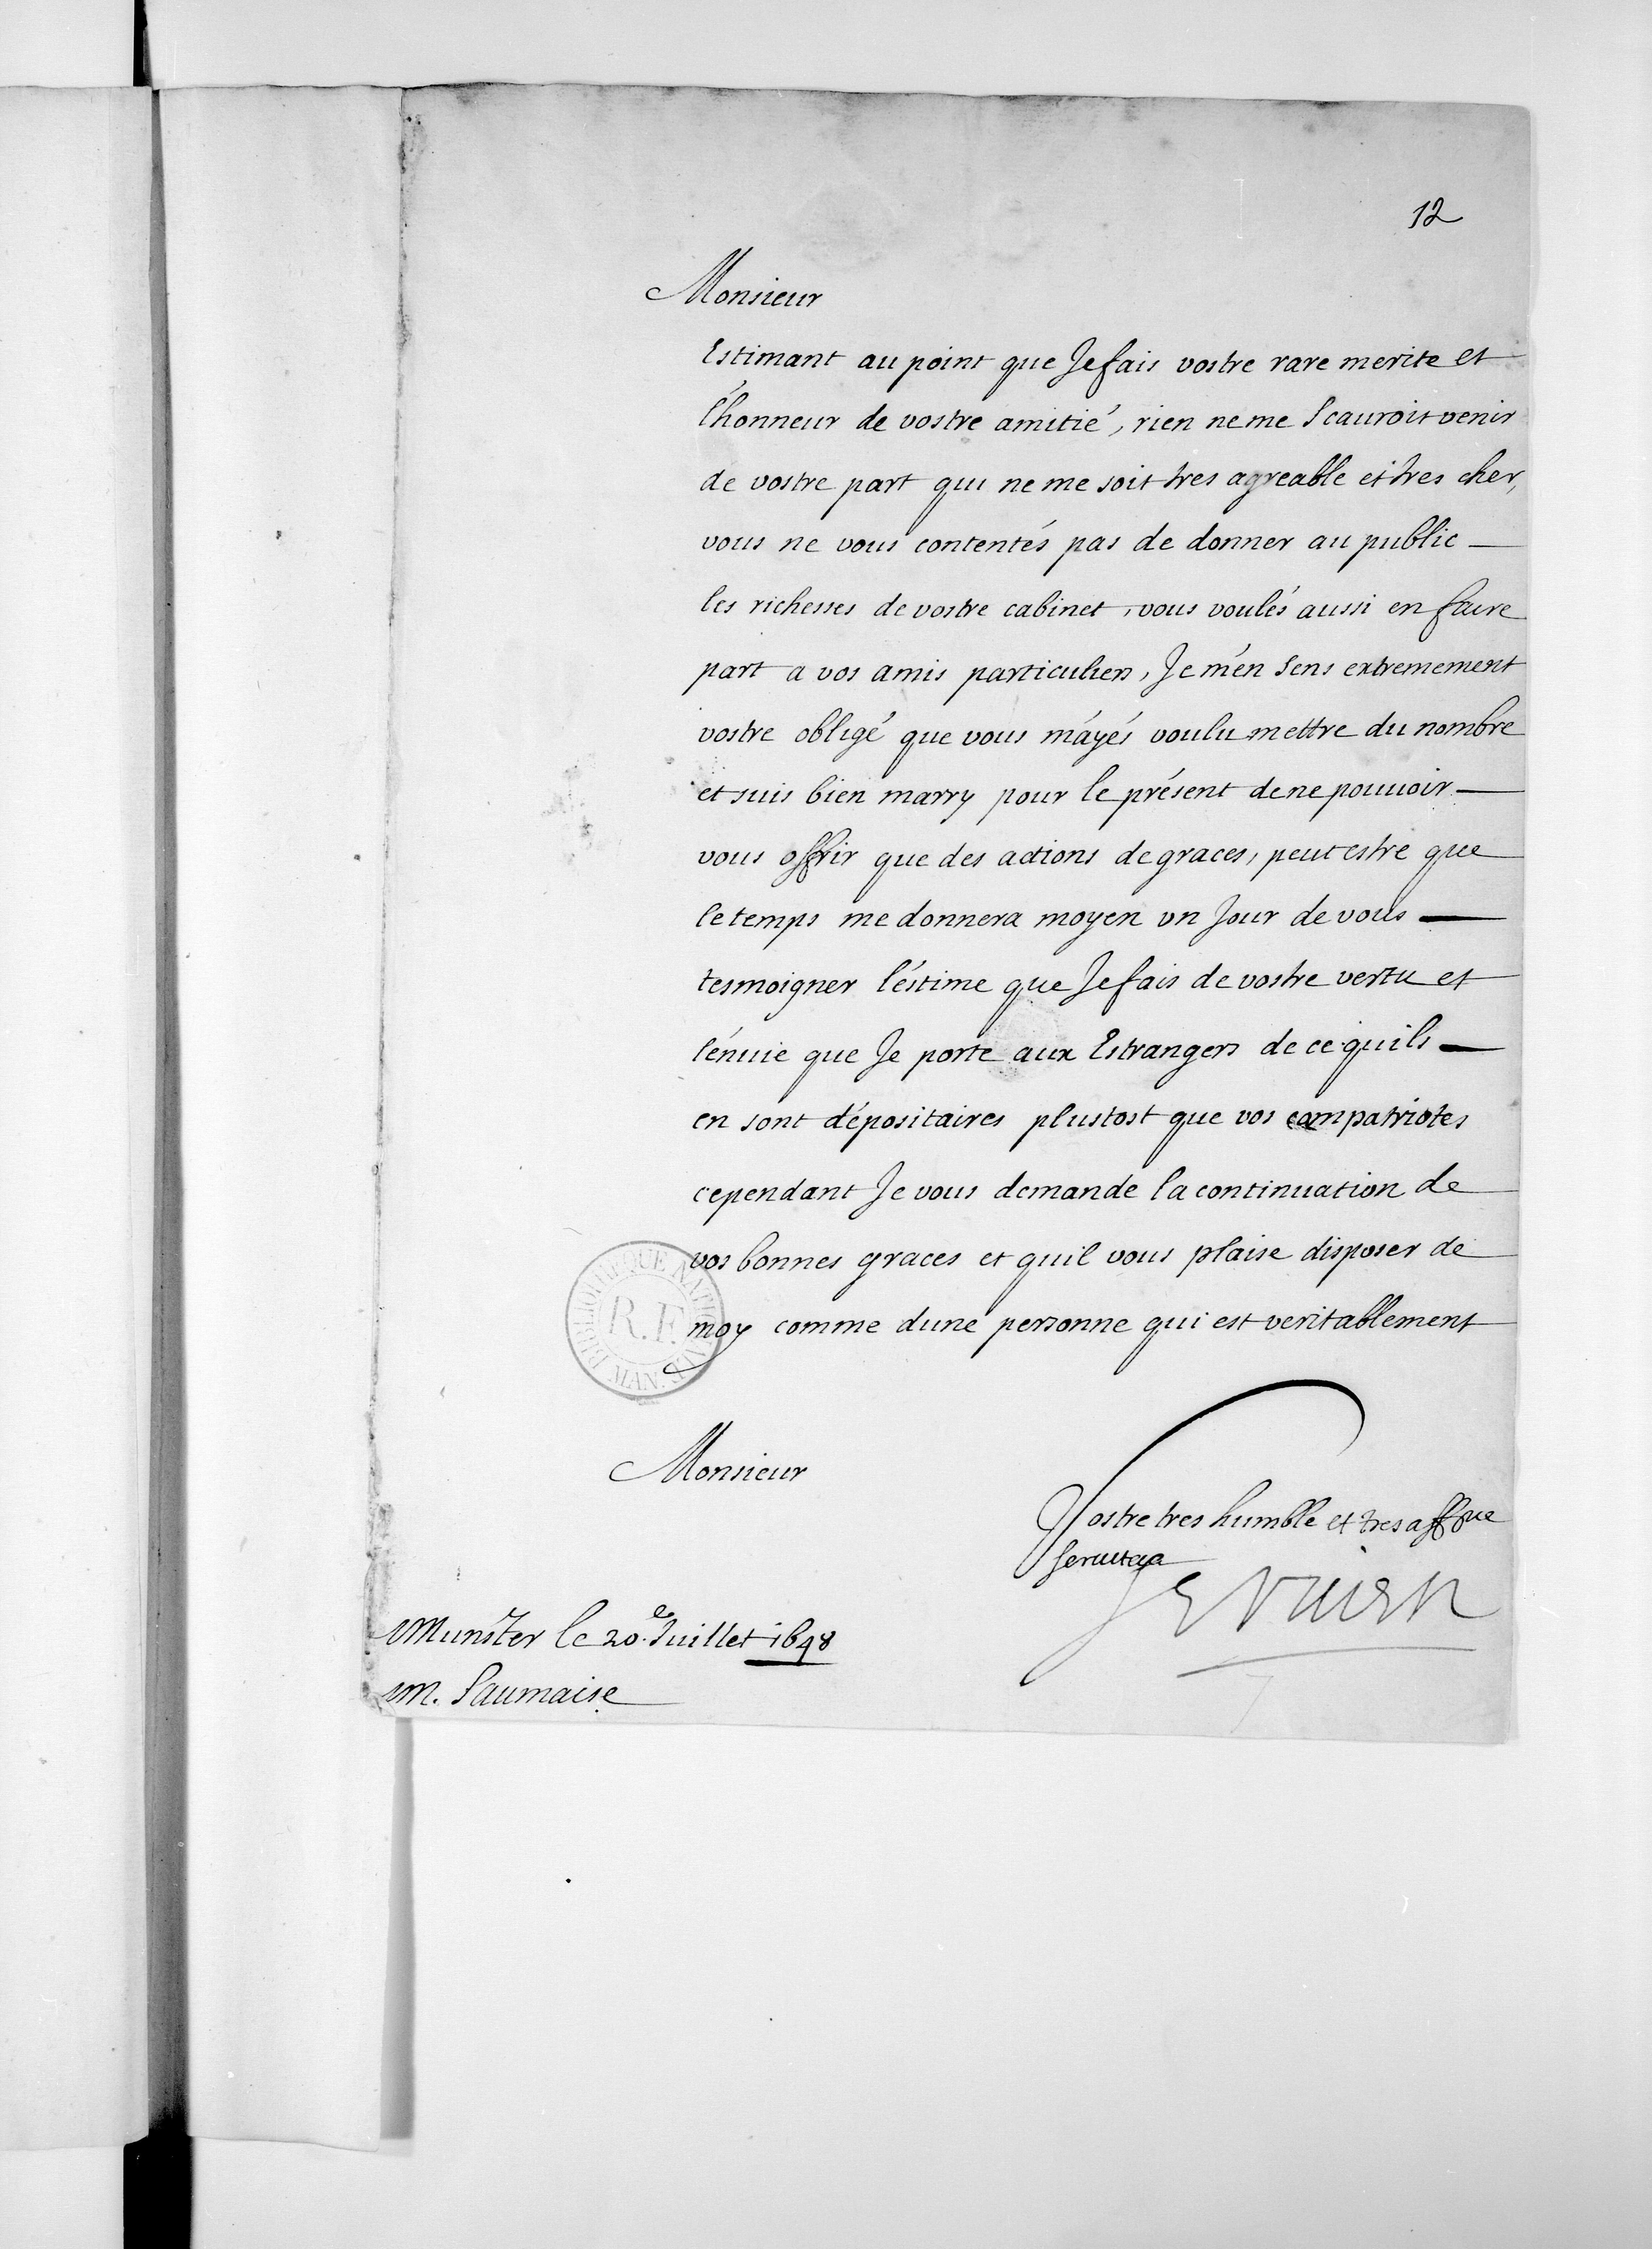 12
Monsieur
Estimant au point que Je fais vostre rare merite et
l'honneur de vostre amitié, rien ne me Scauroit venir
de vostre part qui ne me soit tres agreable et tres cher,
vous ne vous contentés pas de donner au public
les richesses de vostre cabinet, vous voulés aussi en faire
part a vos amis particuliers, Je m'en Sens extremement
vostre obligé que vous m'ayés voulu mettre du nombre
et suis bien marry pour le présent de ne pouuoir
vous offrir que des actions de graces, peut estre que
le temps me donnera moyen un Jour de vous
tesmoigner l'éstime que Je fais de vostre vertu et
l'énuie que Je porte aux Estrangers de ce quils
en sont dépositaires plustost que vos compatriotes
cependant Je vous demande la continuation de
vos bonnes graces et quil vous plaise disposer de
moy comme dune personne qui est veritablement
BIBLIOTHEQUE NATIONALE MAN.
R.F.
Monsieur
Vostre tres humble et tres affne
seruiteur
Servien
Munster le 20.e Juillet 1648
M. Saumaise